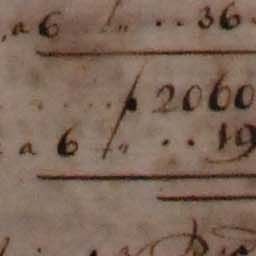 a 6 „ . . 36.
. . . . . ƒ 2060
a 6 „ . . 19